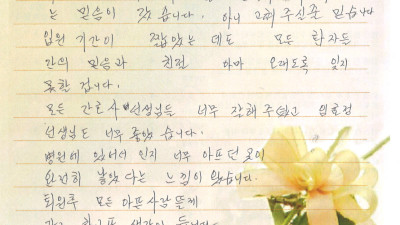 는 믿음이 갔습니다. 아니 고쳐 주신준 믿습니다
입원 기간이 짧았는 데도 모든 환자들
간의 믿음과 친절 아마 오래도록 잊지
못할 겁니다.
모든 간호사 선생님들 너무 잘해 주셨고 원효정
선생님도 너무 좋았습니다.
병원에 있어서 인지 너무 아프던 곳이
완전히 낳았다는 느낌이 있습니다.
퇴원후 모든 아픈사람들께